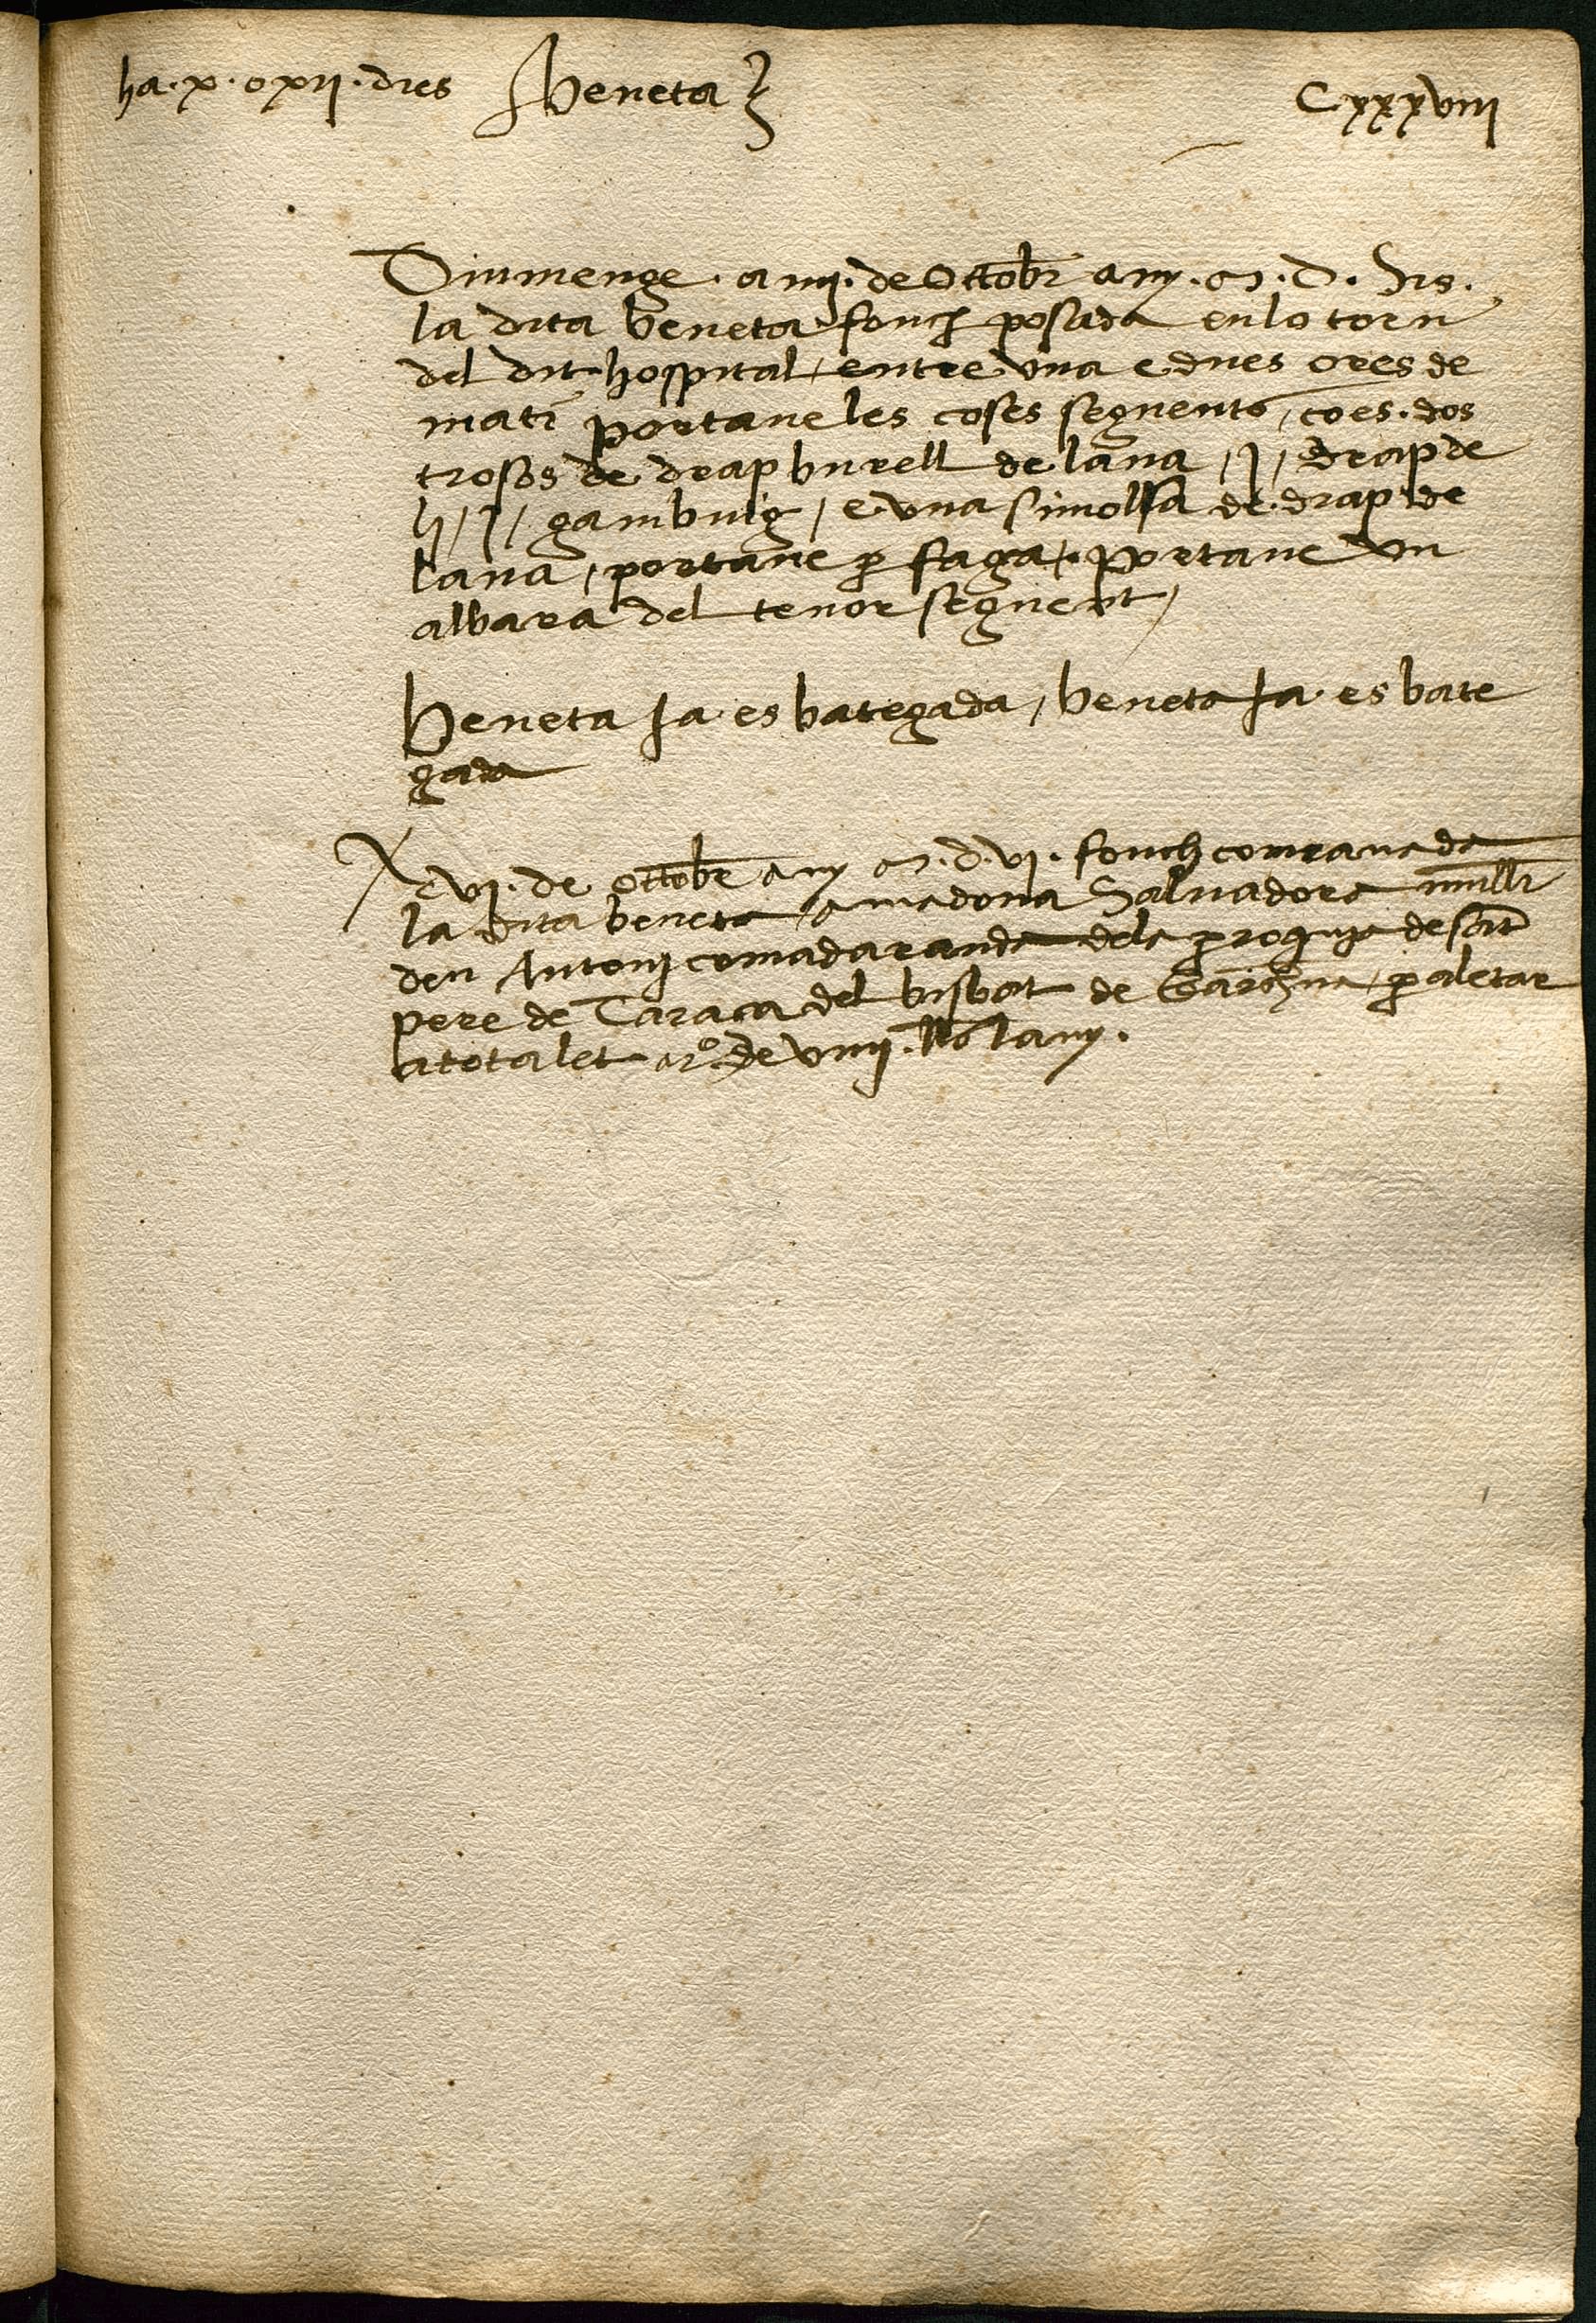 ha . x . o xii . dies Beneta Cxxxviiii
Diumenge . a iiii . de Ottobr any . M . D . sis .
la dita beneta fonch posada en lo torn
del dit hospital / entre una e dues ores de
mati portave les coses seguents / coes . dos
trosos de drap burell de lana / j / drap de
li / j / gambuig / e una simolsa de drap de
lana / portave p faxa / . portave un
albara del tenor seguent /
Beneta ja es bategada / beneta ja es bate
gada
A vj . de ottobr any M . d . vj . fonch comanada
la dita beneta a madona Salvadora mullr
den Antonj comadaranda dela proquja de sant
pere de Taraca del bisbat de p aletar
a tota let de viiii . ll lany .